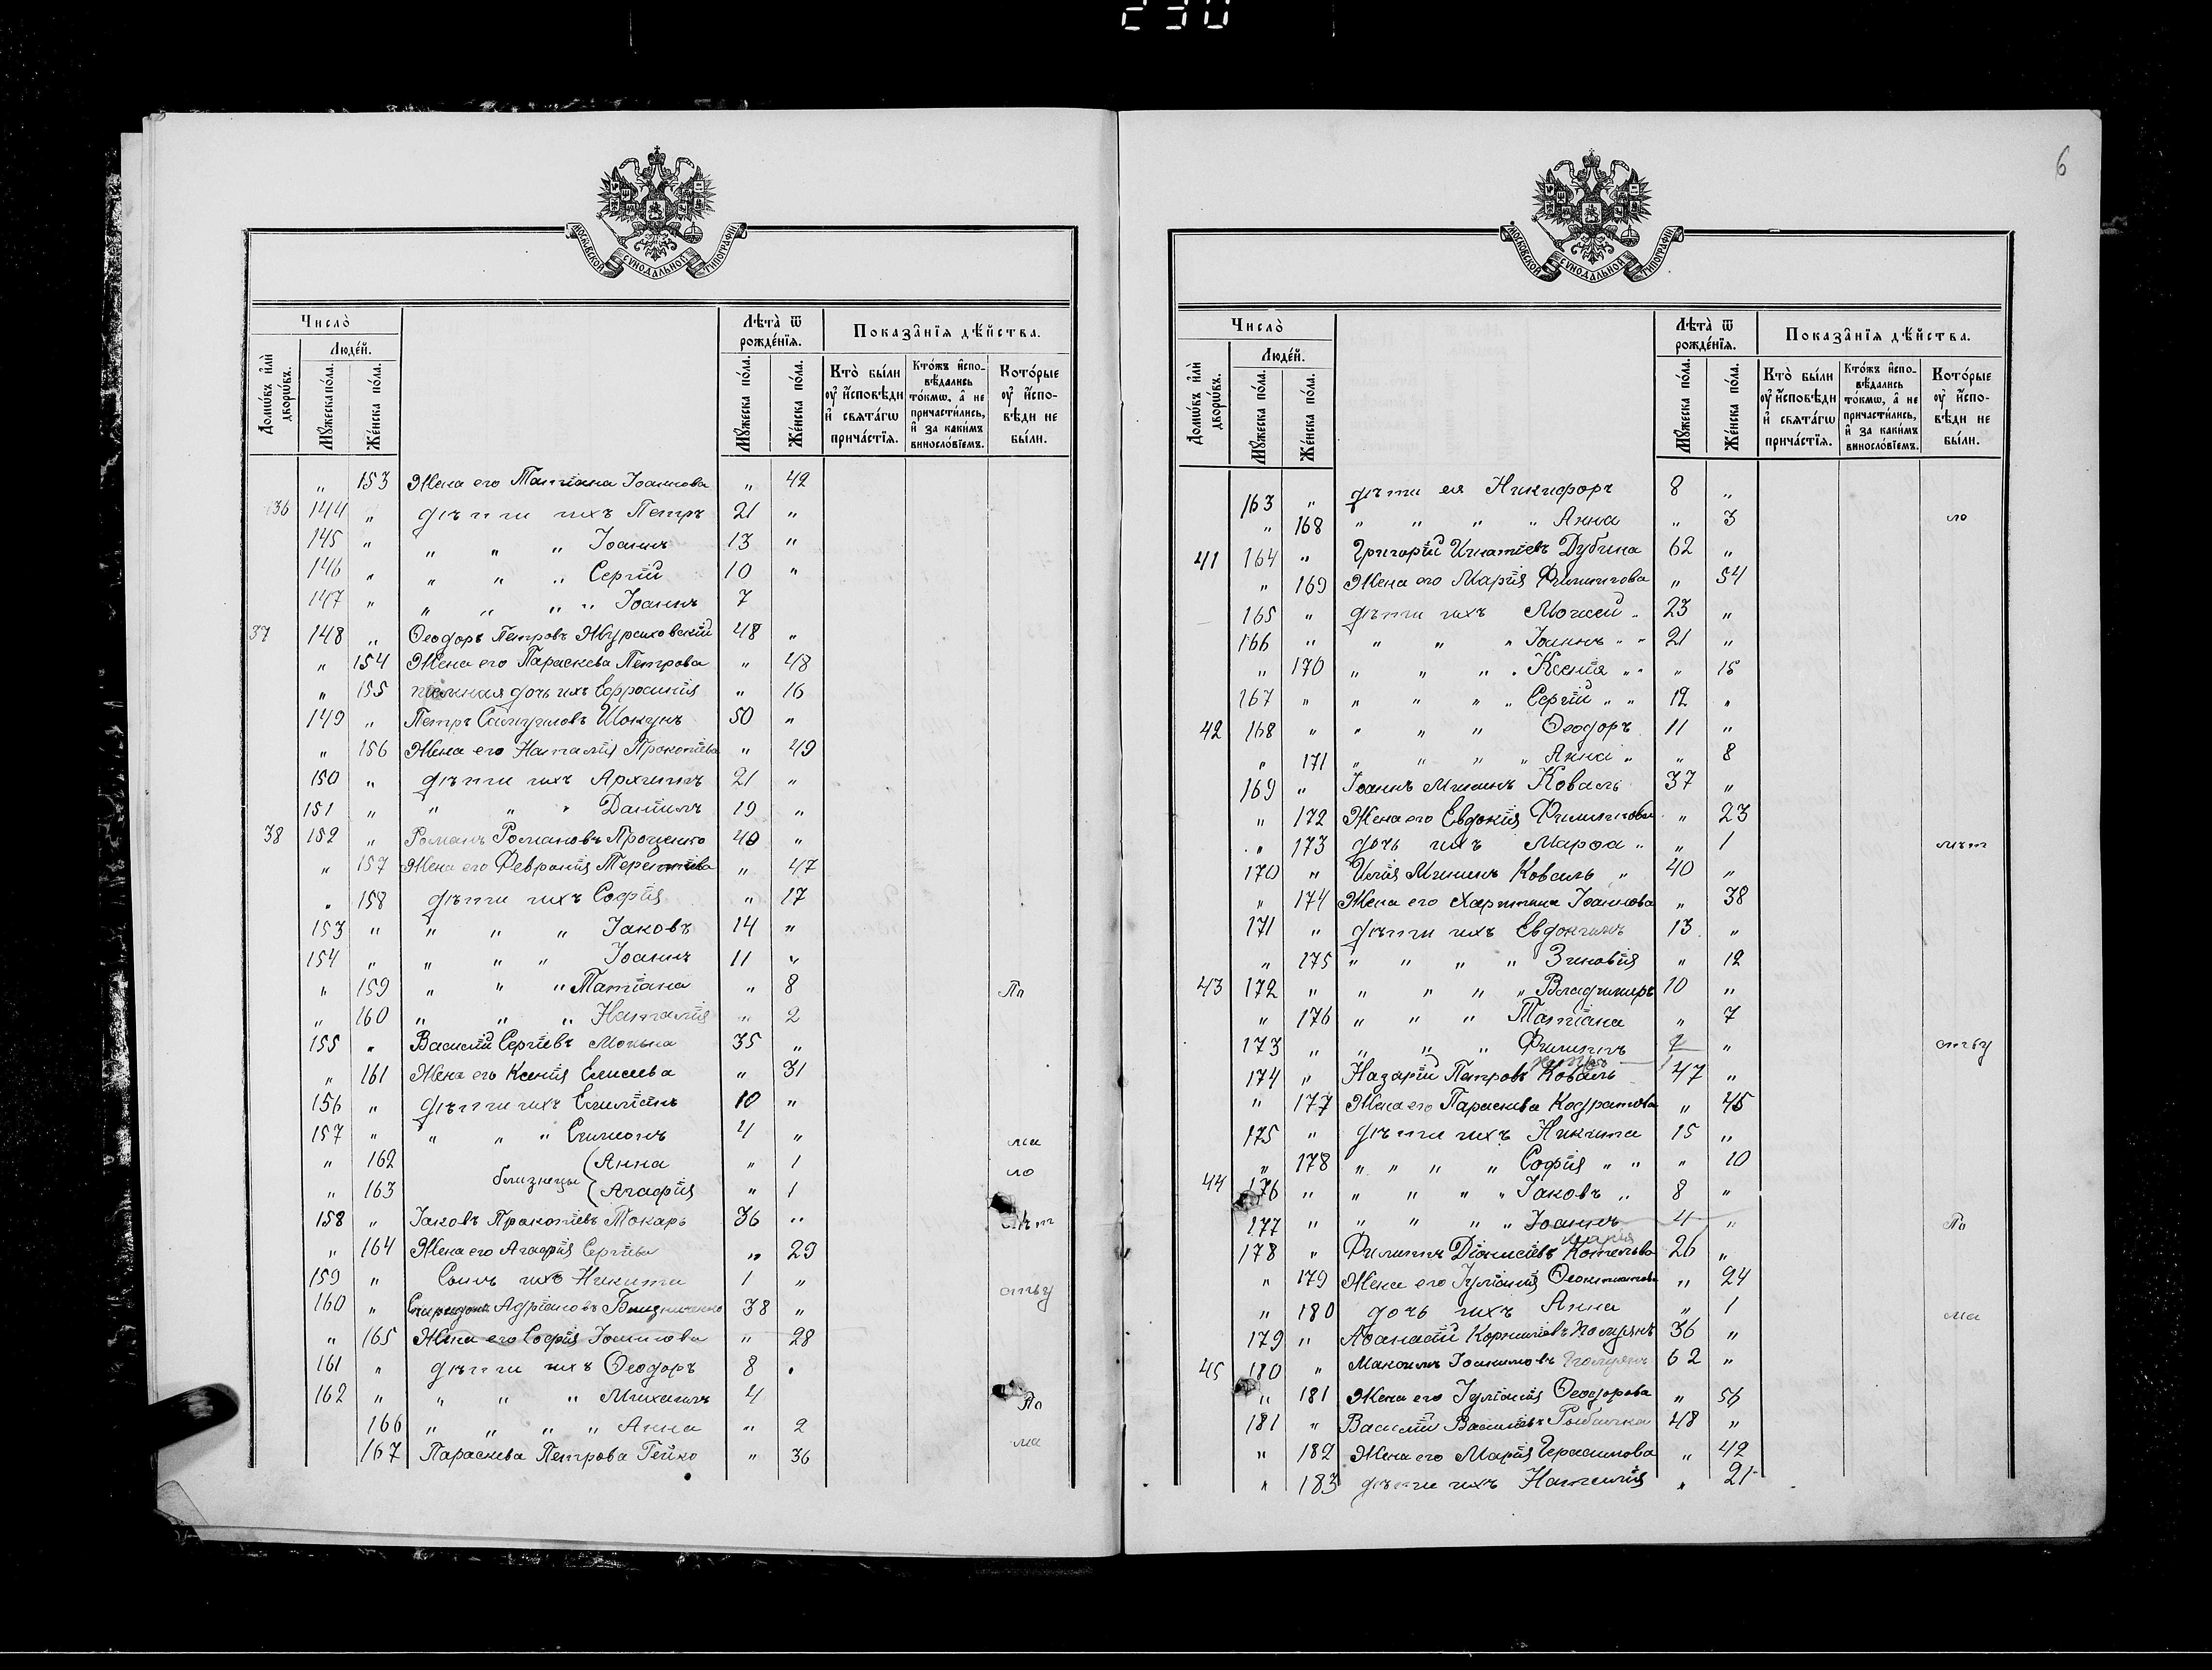 230
МОСКОВСКОЙ СѴНОДАЛЬНОЙ ТИПОГРАФІИ
Число̀
Люде́й.
Домѡ́въ и҆лѝ дворѡ́въ.
Мꙋ́жеска по́ла.
Же́нска по́ла.
Лѣ́та ѿ рожде́нїѧ.
Мꙋ́жеска по́ла.
Же́нска по́ла.
Показа̂нїѧ дѣ́йства.
Кто̀ бы́ли оу҆ и҆́сповѣди и҆ свѧта́гѡ прича́стїѧ.
Кто́жъ и҆спо-вѣ́дались то́кмѡ, а҆ не причасти́лись, и҆ за каки́мъ винословїемъ.
Кото́рые оу҆ и҆́спо-вѣди не бы́ли.
„ 153 Жена его Татіана Іоаннова „ 42
36 144 „ дѣти ихъ Петръ 21 „
145 „ „ „ „ Іоаннъ 13 „
146 „ „ „ „ Сергій 10 „
147 „ „ „ „ „ Іоаннъ 7
37 148 „ Ѳеодоръ Петровъ Жураховскій 48 „
„ 154 Жена его Параскева Петрова „ 48
„ 155 дочь ихъ Евфросинія „ 16
149 „ Петръ Самуиловъ Шокунъ 50 „
„ 156 Жена его Наталія Прокопіева „ 49
150 „ дѣти ихъ Архиппъ 21 „
151 „ „ „ „ Даніилъ 19 „
38 152 „ Романъ Романовъ Проценко 40 „
„ 157 Жена его Февронія Терентіева „ 47
„ 158 дѣти ихъ Софія „ 17
153 „ „ „ „ Іаковъ 14 „
154 „ „ „ „ Іоаннъ 11 „
„ 159 „ „ „ Татіана „ 8 По
„ 160 „ „ „ Наталія „ 2
155 „ Василій Сергіевъ 35 „
„ 161 Жена его Ксенія Елисеева „ 31
156 „ дѣти ихъ Емиліанъ 10 „
157 „ „ „ „ Симеонъ 4 „ ма
„ 162 близнецы Анна „ 1 ло
„ 163 Агафія „ 1
158 „ Іаковъ Прокопіевъ Токарь 36 „ лѣт
„ 164 Жена его Агафія Сергіева „ 29
159 „ Сынъ ихъ Никита 1 „ ству
160 „ Спиридонъ Адріановъ 38 „
„ 165 Жена его Софія Іоаннова „ 28
161 „ дѣти ихъ Ѳеодоръ 8 „
162 „ „ „ „ Михаилъ 4 По
166 „ „ „ „ Анна „ 2
167 Параскева Петрова Гейко „ 36 ма
6
МОСКОВСКОЙ СѴНОДАЛЬНОЙ ТИПОГРАФІИ
Число̀
Люде́й.
Домѡ́въ и҆лѝ дворѡ́въ.
Мꙋ́жеска по́ла.
Же́нска по́ла.
Лѣ́та ѿ рожде́нїѧ.
Мꙋ́жеска по́ла.
Же́нска по́ла.
Показа̂нїѧ дѣ́йства.
Кто̀ бы́ли оу҆ и҆́сповѣди и҆ свѧта́гѡ прича́стїѧ.
Кто́жъ и҆спо-вѣ́дались то́кмѡ, а҆ не причасти́лись, и҆ за каки́мъ винословїемъ.
Кото́рые оу҆ и҆́спо-вѣди не бы́ли.
163 „ дѣти ея Никифоръ 8 „
„ 168 „ „ „ „ Анна „ 3 ло
41 164 „ Григорій Игнатіевъ Дубина 62 „
„ 169 Жена его Марія Филиппова „ 54
165 „ дѣти ихъ Моисей „ 23 „
166 „ „ „ „ Іоаннъ „ „ 21 „
„ 170 „ „ „ „ Ксенія „ „ „ 15
167 „ „ „ „ „ Сергій „ „ 12 „
42 168 „ „ „ „ Ѳеодоръ 11 „
„ 171 „ „ „ „ Анна „ „ 8
169 „ Іоаннъ Мининъ Коваль 37 „
„ 172 Жена его Евдокія Филиппова „ 23
„ 173 дочь ихъ Марѳа „ „ 1 лѣт
170 „ Илія Мининъ Коваль „ 40 „
„ 174 Жена его Харитина Іоаннова „ 38
171 „ дѣти ихъ Евдокимъ 13 „
„ 175 „ „ „ „ Зиновія „ 12
43 172 „ „ „ „ „ Владимиръ 10 „
„ 176 „ „ „ Татіана „ 7
173 „ „ „ „ Филиппъ 2 „ ству
174 „ Назарій Петровъ Коваль 47 „
„ 177 Жена его Параскева Кодратова „ 45
175 „ дѣти ихъ Никита 15 „
„ 178 „ „ „ „ Софія „ „ „ 10
44 176 „ „ „ „ „ Іаковъ „ 8 „
177 „ „ „ „ „ Іоаннъ 4 „ По
Марія
178 „ Филиппъ Діонисіевъ Котельва 26 „
„ 179 Жена его Іуліанія Ѳеоктистова „ 24
„ 180 дочь ихъ Анна „ 1 ма
179 „ Аѳанасій Корниліевъ 36 „
45 180 „ Максимъ Іоакимовъ 62 „
„ 181 Жена его Іуліанія Ѳеодорова „ 56
181 „ Василій Васильевъ Рыбалка 48 „
„ 182 Жена его Марія Герасимова „ 42
„ 183 дѣти ихъ Наталія „ 21